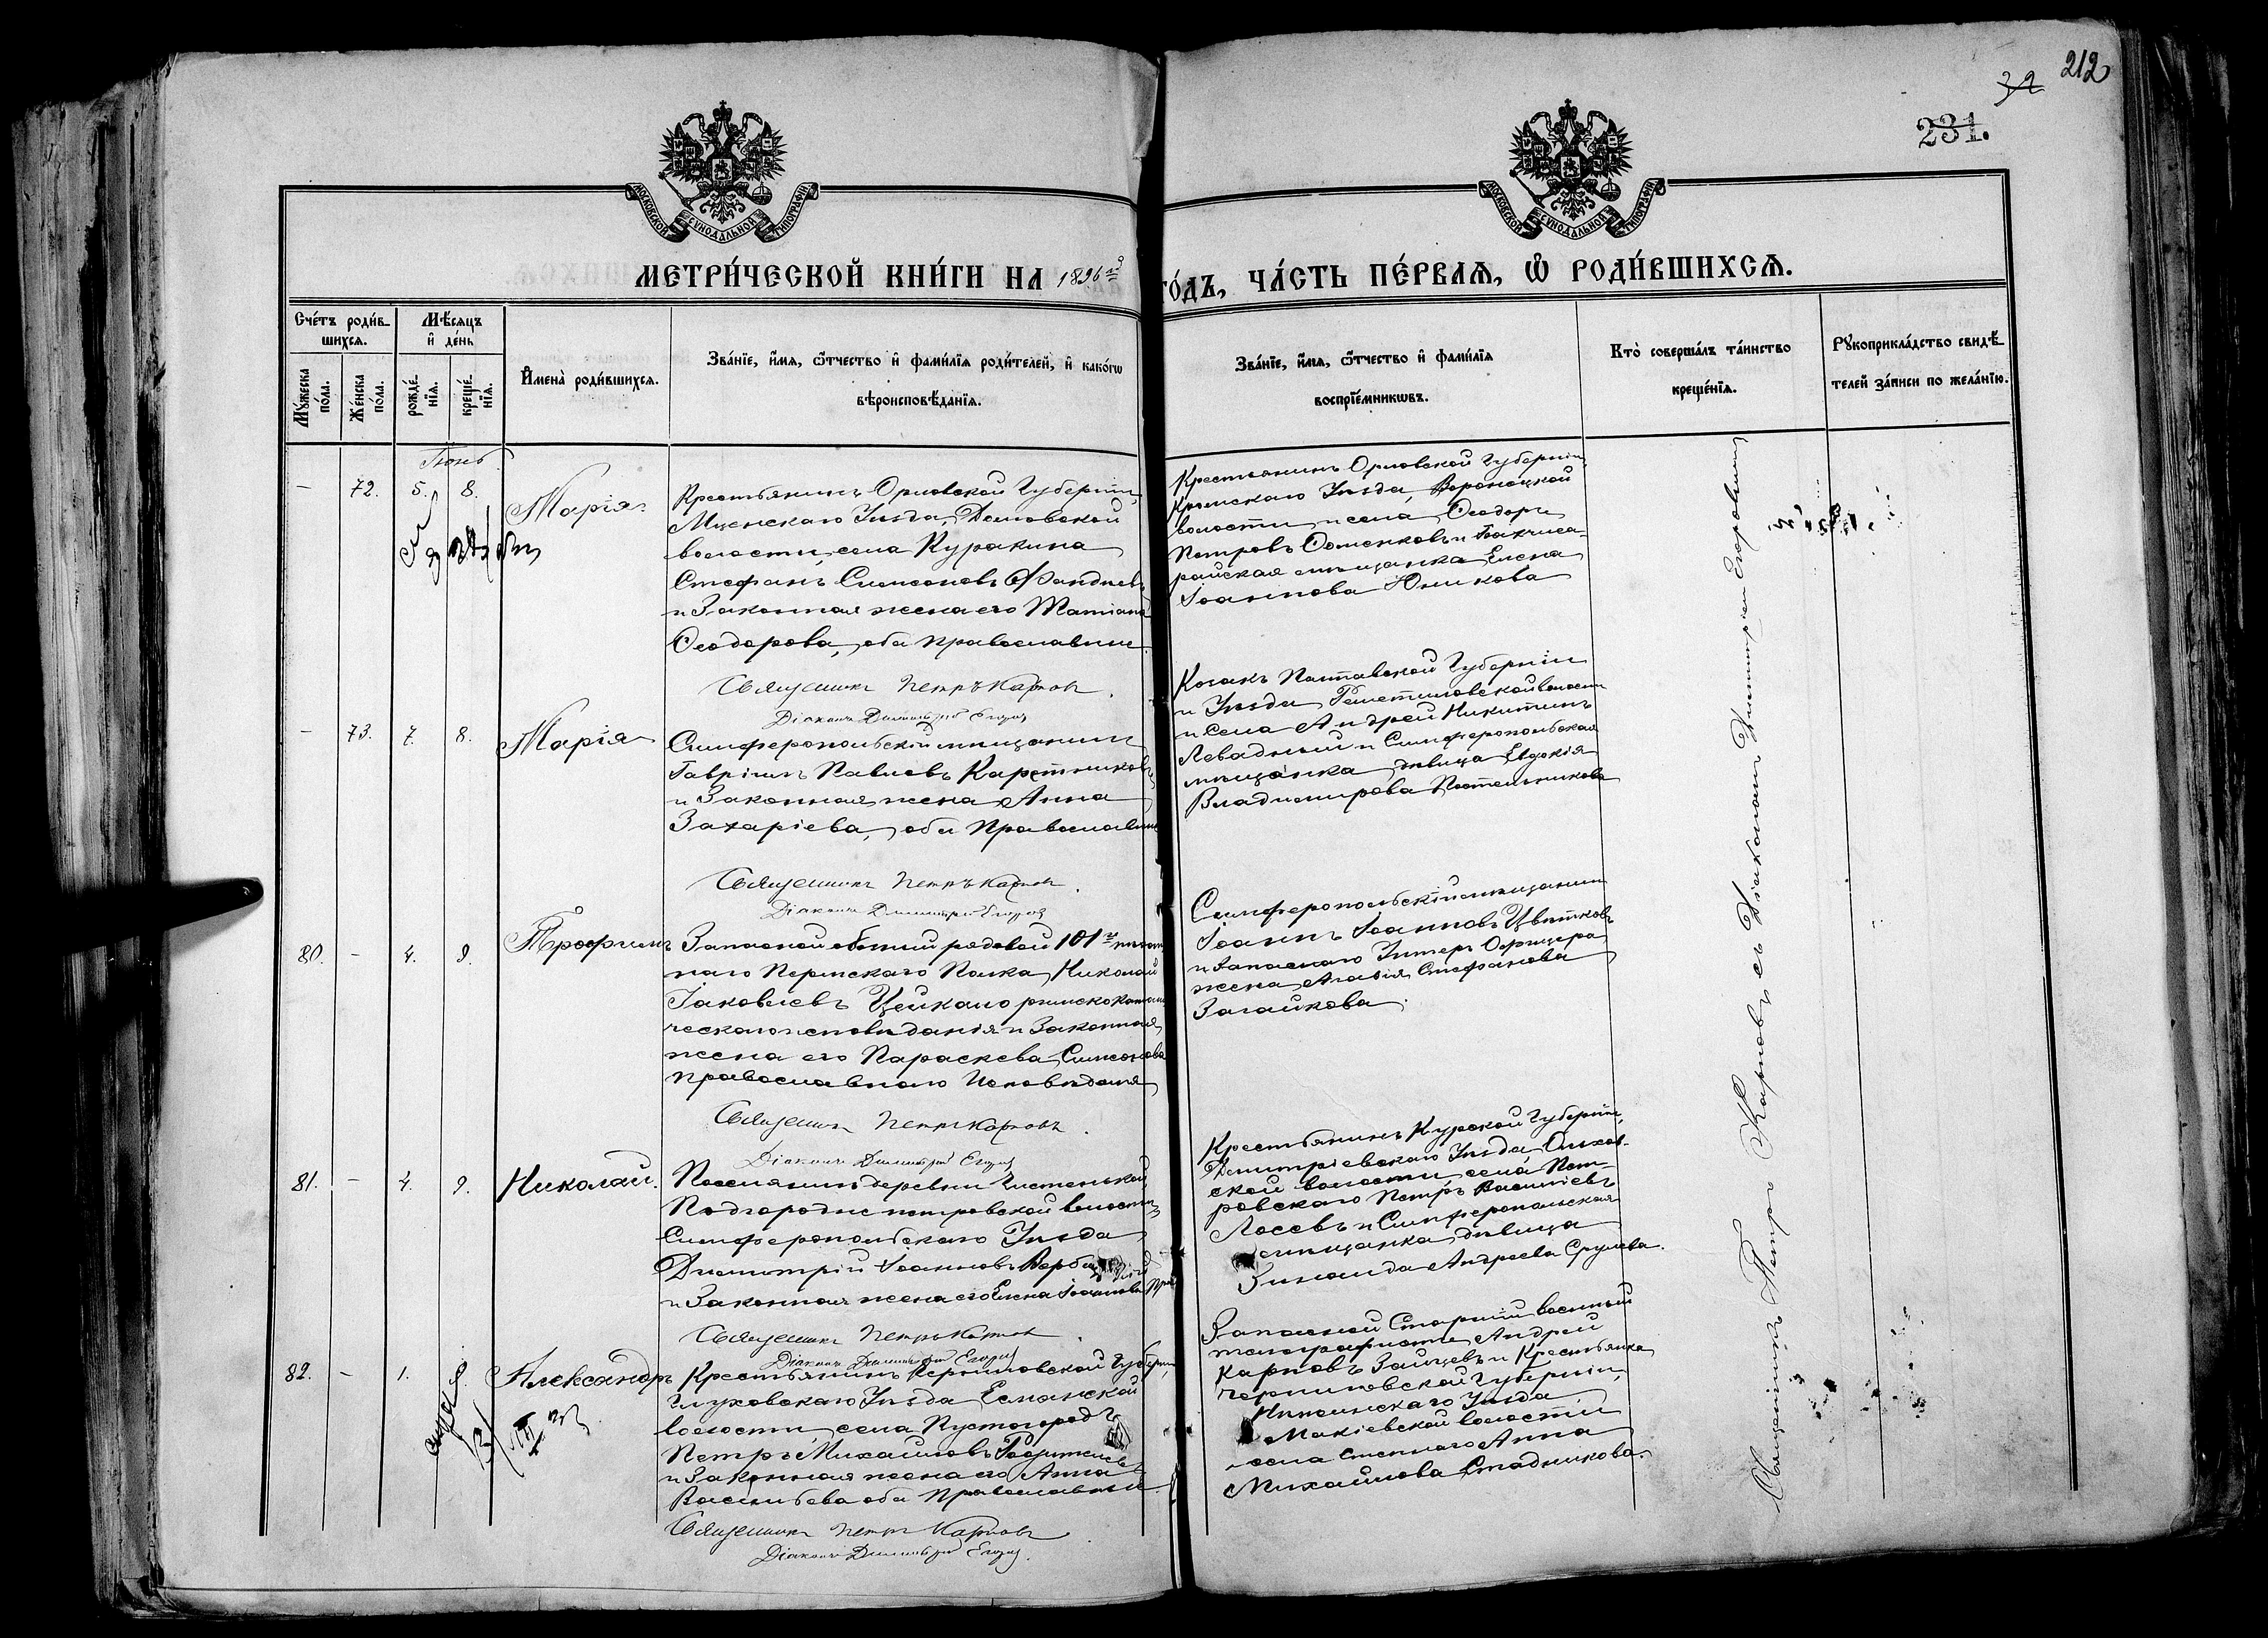 212
32
231.
МОСКОВСКОЙ СѴНОДАЛЬНОЙ ТИПОГРАФІИ
МОСКОВСКОЙ СѴНОДАЛЬНОЙ ТИПОГРАФІИ
МЕТРИ́ЧЕСКОЙ КНИ́ГИ НА 1896й ГО́ДЪ, ЧА́СТЬ ПЕ́РВАѦ, Ѡ РОДИ́ВШИХСѦ.
Сче́тъ роди́в-
шихсѧ.
Мꙋ́жеска по́ла.
Же́нска по́ла.
Мѣ́сѧцъ и҆ де́нь
рожде́-нїѧ.
креще́-нїѧ.
И҆мена̀ роди́вшихсѧ.
Зва́нїе, и҆́мѧ, ѻ҆́тчество и҆ фами́лїѧ роди́телей, и҆ како́гѡ
вѣроисповѣ́данїѧ.
Зва́нїе, и҆́мѧ, ѻ҆́тчество и҆ фами́лїѧ
воспрїе́мникѡвъ.
Кто̀ соверша́лъ та́инство
креще́нїѧ.
Рꙋкоприкла́дство свидѣ́-
телей за́писи по жела́нїю.
Іюнь
— 72. 5. 8. Марія
Крестьянинъ Орловской Губерніи,
Мценскаго Уѣзда,
волости, села Куракина
Стефанъ Симеоновъ
и Законная жена его Татіана
Ѳеодорова, оба православные.
Священникъ Петръ Карповъ.
Діаконъ Димитрій Егоровъ
Крестьянинъ Орловской Губерніи,
Кромскаго Уѣзда,
волости и села Ѳеодоръ
Петровъ и Бахчиса-
райская мѣщанка Елена
Іоаннова Юшкова
— 73. 7. 8. Марія
Симферопольскій мѣщанинъ
Гавріилъ Павловъ Каретниковъ
и Законная жена Анна
Захаріева, оба Православные
Священникъ Петръ Карповъ.
Діаконъ Димитрій Егоровъ
Козакъ Полтавской Губерніи
и Уѣзда Решетиловской волости
и села Андрей Никитинъ
Левадный и Симферопольская
мѣщанка девица Евдокія
Владимирова Постельникова
80. — 4. 9. Трофимъ
Запасной рядовой 101го пѣхот
наго Пермскаго Полка, Николай
Іаковлевъ римскокатоли
ческаго исповѣданія и Законная
жена его Параскева Симеонова
православнаго Исповѣданія
Священникъ Петръ Карповъ.
Діаконъ Димитрій Егоровъ
Симферопольскій мѣщанинъ
Іоаннъ Іоанновъ Цвѣтковъ
и Запаснаго Унтеръ Офицера
жена Агафія Стефанова
Загайкова.
81. — 4. 9. Николай.
Поселянинъ деревни Чистенькой
Подгородне петровской волости,
Симферопольскаго Уѣзда
Димитрій Іоанновъ
и Законная жена его Елена Іоаннова
Священникъ Петръ Карповъ.
Діаконъ Димитрій Егоровъ
Крестьянинъ Курской Губерніи,
Димитріевскаго Уѣзда Ольхов-
ской волости, села Пет-
ровскаго Петръ Васильевъ
Лосевъ и Симферопольская
мѣщанка, дѣвица
Зинаида Андреева
82. — 1. 9. Александръ
Крестьянинъ Черниговской Губерніи,
Глуховскаго Уѣзда Есманской
волости, села Пустогородъ
Петръ Михайловъ
и Законная жена его Анна
Васильева оба Православные.
Священникъ Петръ Карповъ
Діаконъ Димитрій Егоровъ.
Запасной Старшій военный
телеграфистъ Андрей
Карповъ Зайцевъ и Крестьянка
Черниговской Губерніи,
Уѣзда
Макіевской волости
села Степнаго Анна
Михайлова Стадникова.
Священникъ Петръ Карповъ съ Діакономъ Димитріем Егоровымъ